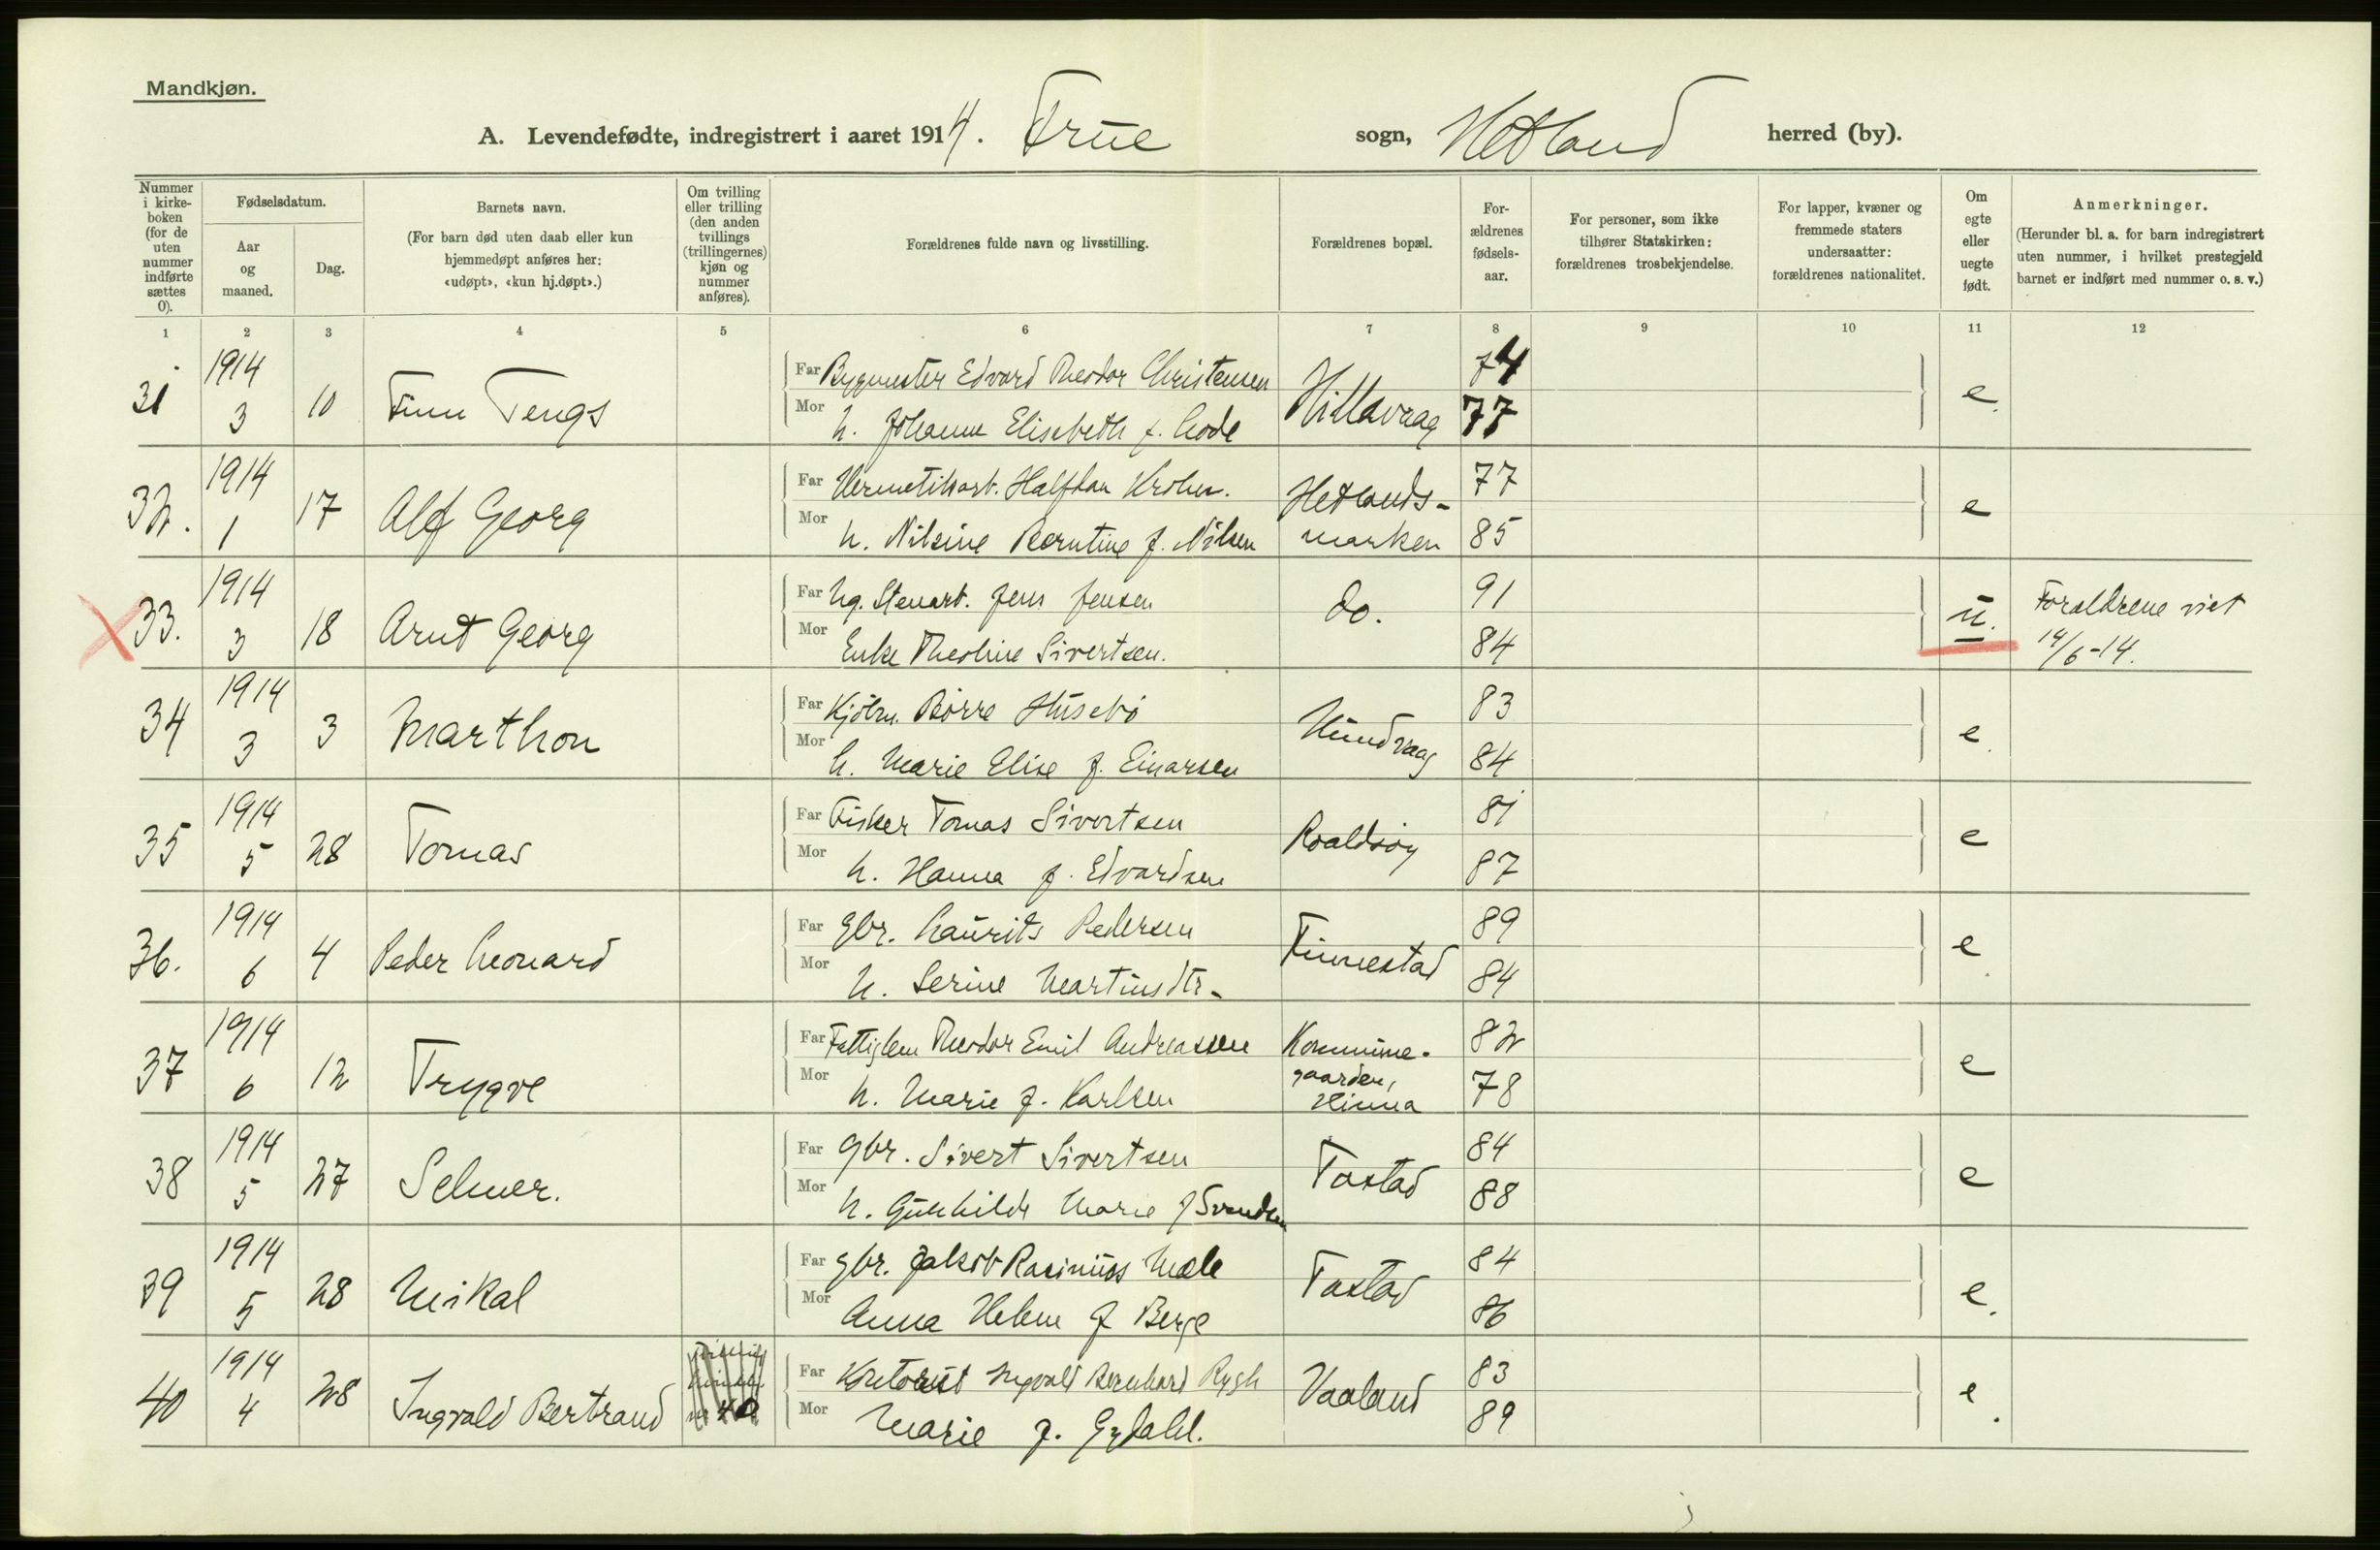 Mandkjøn.
A. Levendefødte, indregistrert i aaret 1914. Frue sogn, Hetland herred (by).
Nummer i kirke-boken (for de uten nummer indførte sættes 0).
Fødselsdatum.
Aar og maaned.
Dag.
Barnets navn.
(For barn død uten daab eller kun hjemmedøpt anføres her: «udøpt», «kun hj.døpt».)
Om tvilling eller trilling (den anden tvillings (trillingernes) kjøn og nummer anføres).
Forældrenes fulde navn og livsstilling.
Forældrenes bopæl.
For-ældrenes fødsels-aar.
For personer, som ikke tilhører Statskirken: forældrenes trosbekjendelse.
For lapper, kvæner og fremmede staters undersaatter: forældrenes nationalitet.
Om egte eller uegte født.
Anmerkninger.
(Herunder bl. a. for barn indregistrert uten nummer, i hvilket prestegjeld barnet er indført med nummer o. s. v.)
1 2 3 4 5 6 7 8 9 10 11 12
31 1914 3 10 Finn Tengs Far Bygmester Edvard Theodor Christensen Hillevaag 74 e.
Mor h. Johanne Elisabeth f. Lode 77
32. 1914 1 17 Alf Georg Far Hermetikarb. Halfdan Krohn. Hetlands- 77 e
Mor h. Nilsine Berntine f. Nilsen marken 85
33. 1914 3 18 Arnt Georg Far Ug. Stenarb. Jens Jensen do. 91 u. Forældrene viet
Mor Enke Theoline Sivertsen. 84 14/6-14.
34 1914 3 3 Marthon Far Kjölm. Börre Husebö Hundvaag 83 e.
Mor h. Marie Elise f. Einarsen 84
35 1914 5 28 Tomas Far Fisker Tomas Sivertsen Roaldsöy 81 e
Mor h. Hanna f. Edvardsen 87
36. 1914 6 4 Peder Leonard Far Gbr. Laurits Pedersen Finnestad 89 e
Mor h. Serine Martinsdtr- 84
37 1914 6 12 Trygve Far Fattiglem Theodor Emil Andreassen Kommune- 82 e
Mor h. Marie f. Karlsen gaarden, Hinna 78
38 1914 5 27 Selmer. Far Gbr. Sivert Sivertsen Tastad 84 e
Mor h. Gunhilde Marie f Svendsen 88
39 1914 5 28 Mikal Far Gbr. Jakob Rasmus Mæle Tastad 84 e.
Mor Anna Helene f Berge 86
40 1914 4 28 Ingvald Bertrand 40 Far Kontorist Ingvald Bernhard Rygh Vaaland 83 e.
Mor Marie f. Gydahl. 89